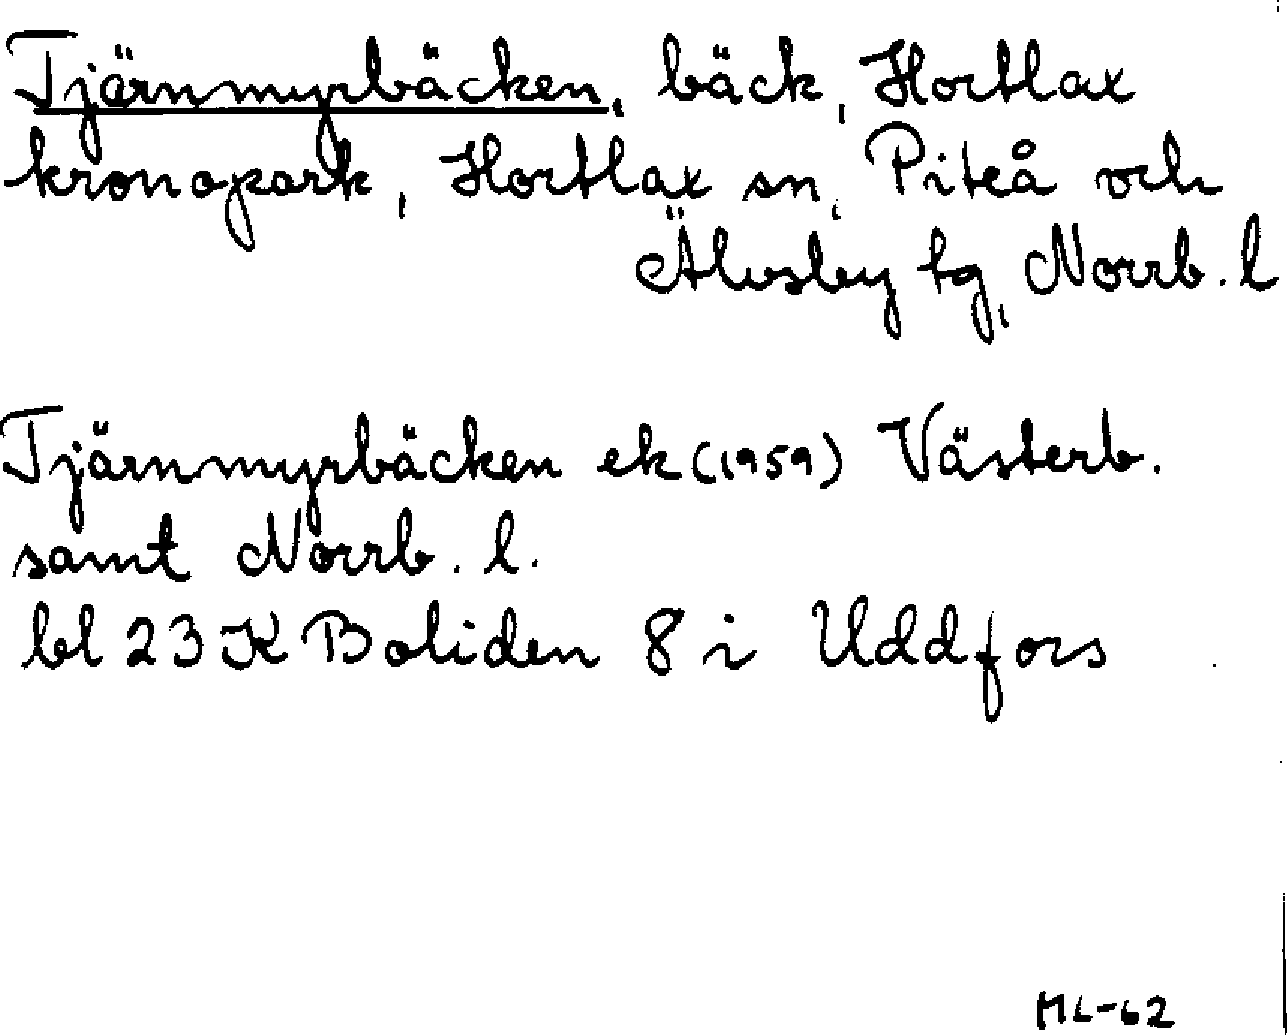 Tjärnmyrbäcken, bäck, Hortlax
kronopark, Hortlax sn, Piteå och
Älvsby tg, Norrb. l
Tjärnmyrbäcken ek (1959) Västerb.
samt Norrb. l.
bl 23 K Boliden 8 i Uddfors
ML-62